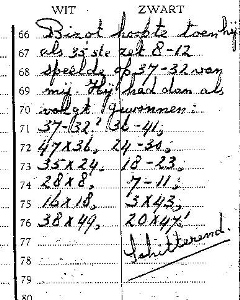 WIT ZWART
66 Bizot hoopte toen hij
67 als 35ste zet 8-12
68 speelde op 37-32 van
69 mij. Hij had dan als
70 volgt gewonnen:
71 37-32? 36-41,
72 47x36, 24-30,
73 35x24, 18-23,
74 28x8, 7-11,
75 16x18, 3x43,
76 38x49, 20x47!
77 Schitterend.
78
79
80